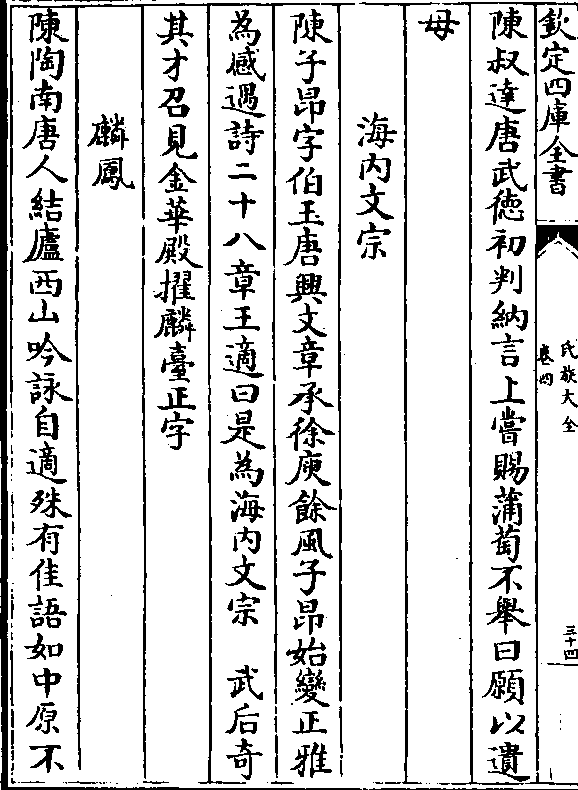 欽定四庫全書
氏族大全
卷四
三十四
陳叔達唐武德初判納言上嘗賜蒲萄不舉曰願以遺
母
海内文宗
陳子昂字伯玉唐興文章承徐庾餘風子昂始變正雅
為感遇詩二十八章王適曰是為海内文宗 武后奇
其才召見金華殿擢麟臺正字
麟鳳
陳陶南唐人結廬西山吟詠自適殊有佳語如中原不